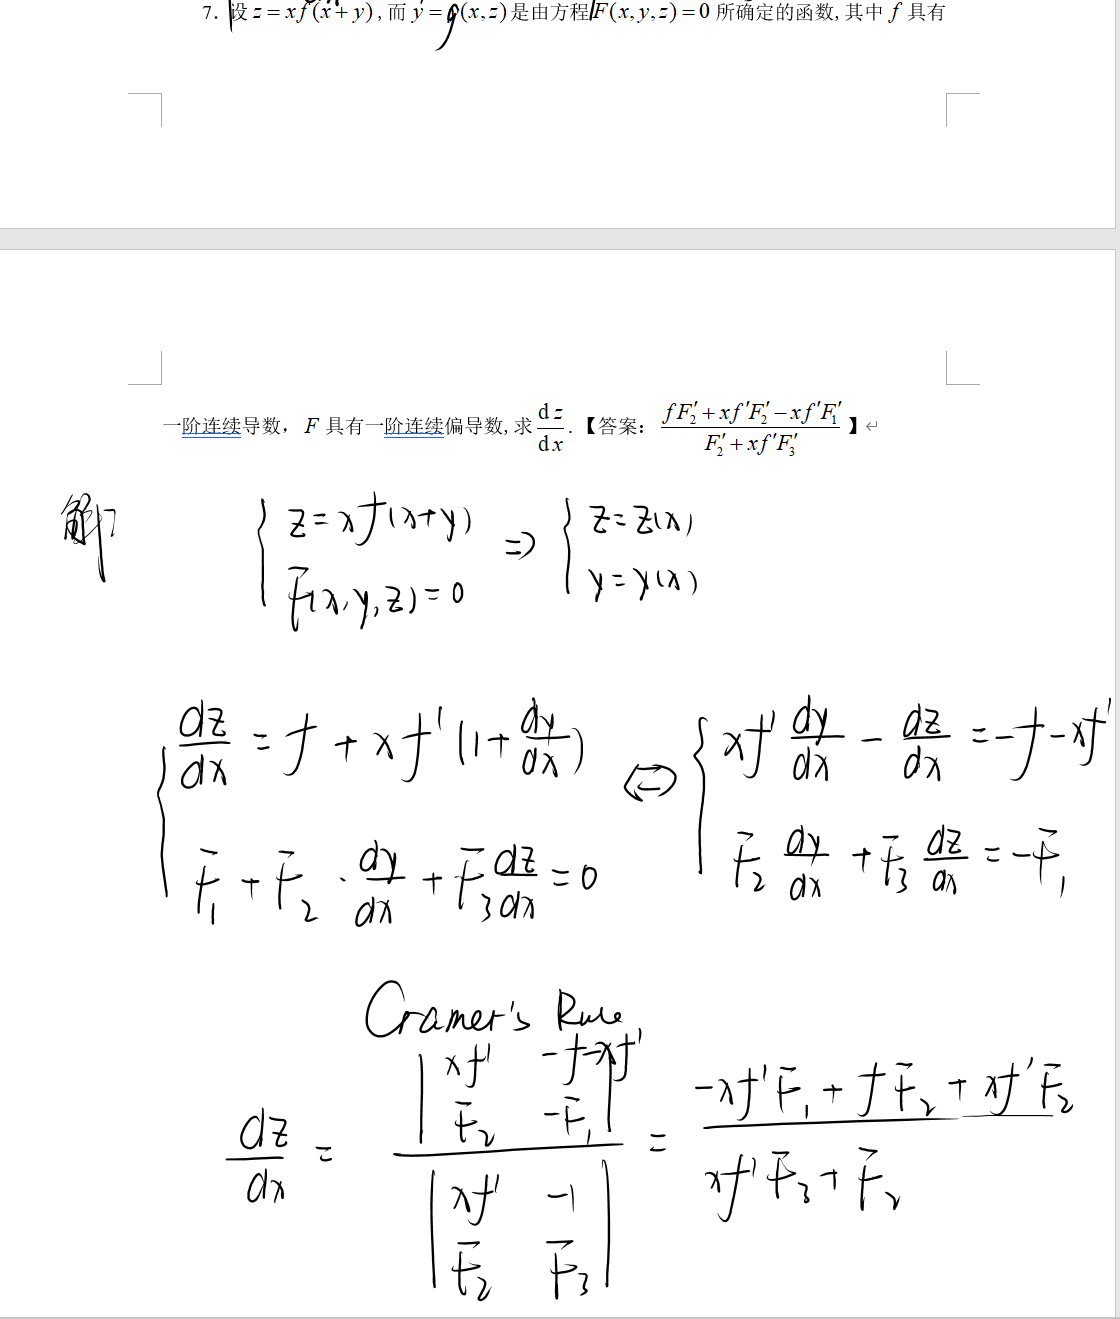 7. 设 z = xf(x+y), 而 y = g(x,z) 是由方程 F(x,y,z) = 0 所确定的函数, 其中 f 具有
一阶连续导数, F 具有一阶连续偏导数, 求 dz/dx. 【答案: (fF₂′ + xf′F₂′ − xf′F₁′)/(F₂′ + xf′F₃′)】↵
解 { z = xf(x+y) ⇒ { z = z(x)
F(x,y,z) = 0 y = y(x)
{ dz/dx = f + xf′(1 + dy/dx) ⇔ { xf′ dy/dx − dz/dx = −f − xf′
F₁ + F₂ · dy/dx + F₃ dz/dx = 0 F₂ dy/dx + F₃ dz/dx = −F₁
Cramer's Rule
dz/dx = | xf′ −f−xf′ ; F₂ −F₁ | / | xf′ −1 ; F₂ F₃ | = (−xf′F₁ + fF₂ + xf′F₂)/(xf′F₃ + F₂)